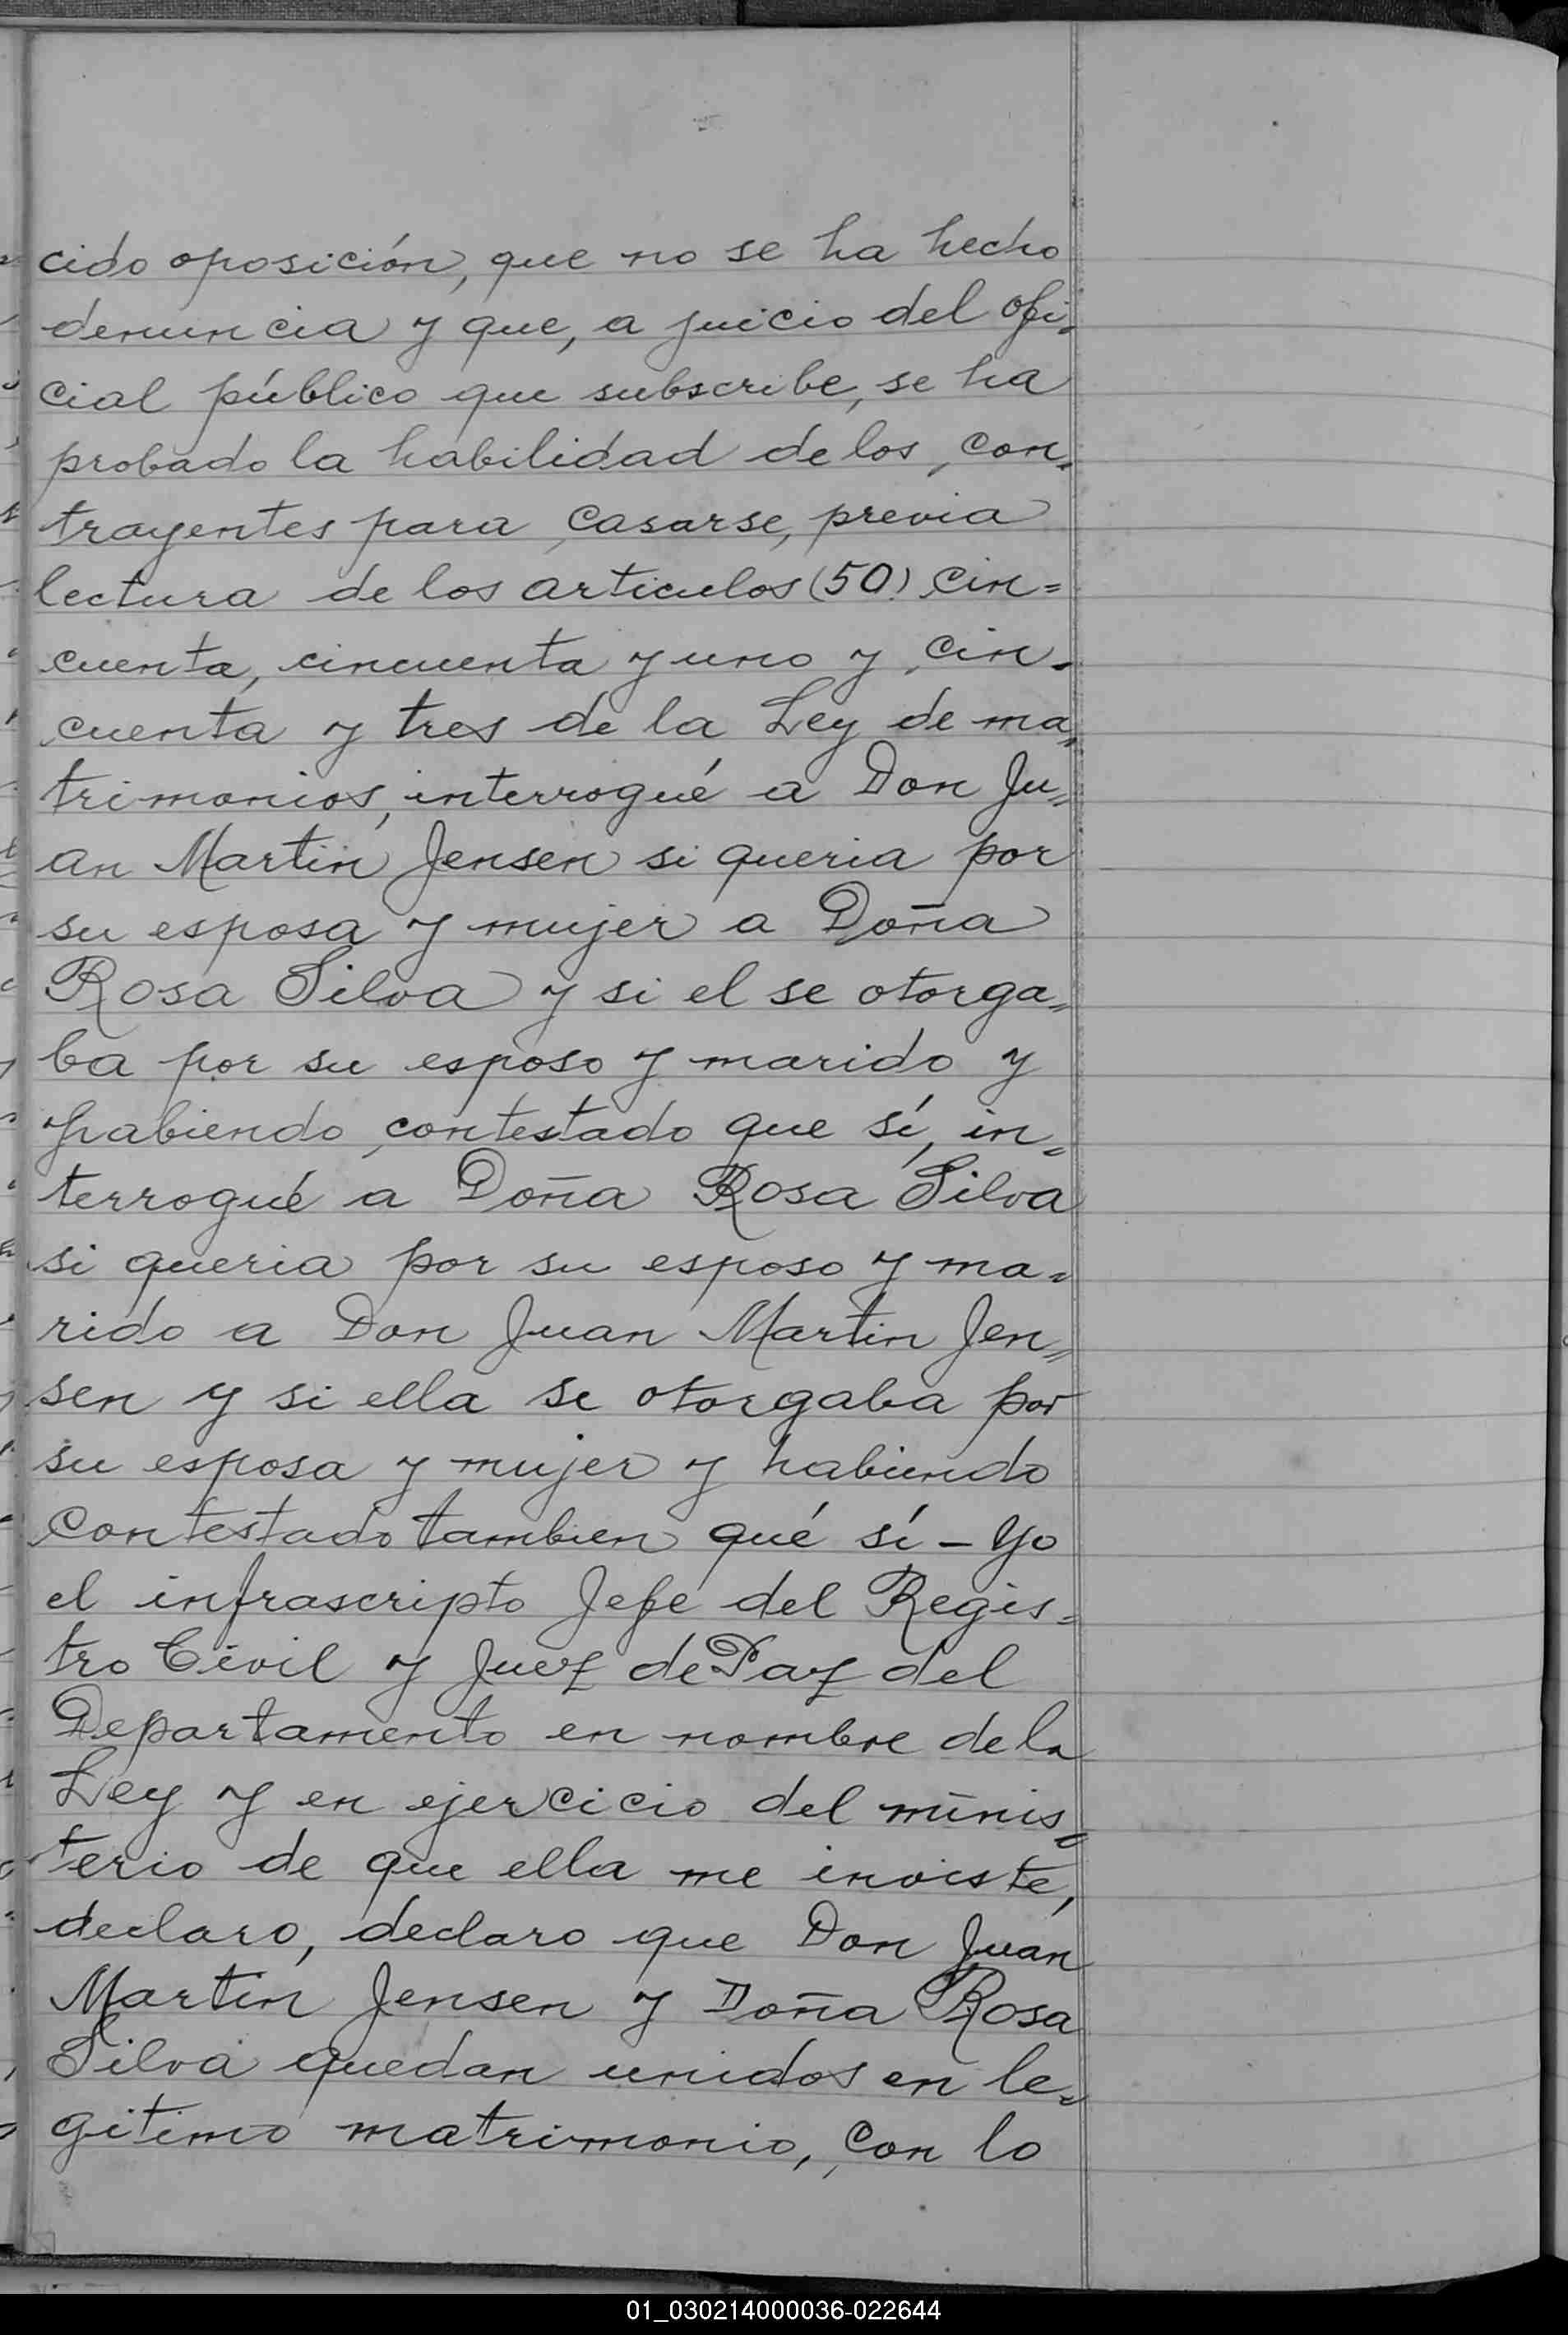 cido oposición, que no se ha hecho
denuncia y que, a juicio del ofi-
cial público que subscribe, se ha
probado la habilidad de los con-
trayentes para casarse, previa
lectura de los articulos (50) cin=
cuenta, cincuenta y uno y cin-
cuenta y tres de la Ley de ma-
trimonios, interrogué a Don Ju=
an Martin Jensen si queria por
su esposa y mujer a Doña
Rosa Silva y si el se otorga=
ba por su esposo y marido y
habiendo contestado que sí, in=
terrogué a Doña Rosa Silva
si queria por su esposo y ma=
rido a Don Juan Martin Jen=
sen y si ella se otorgaba por
su esposa y mujer y habiendo
contestado tambien qué sí - Yo
el infrascripto Jefe del Regis=
tro Civil y Juez de Paz del
Departamento en nombre de la
Ley y en ejercicio del minis=
terio de que ella me inviste,
declaro, declaro que Don Juan
Martin Jensen y Doña Rosa
Silva quedan unidos en le=
gitimo matrimonio, con lo
01_030214000036-022644